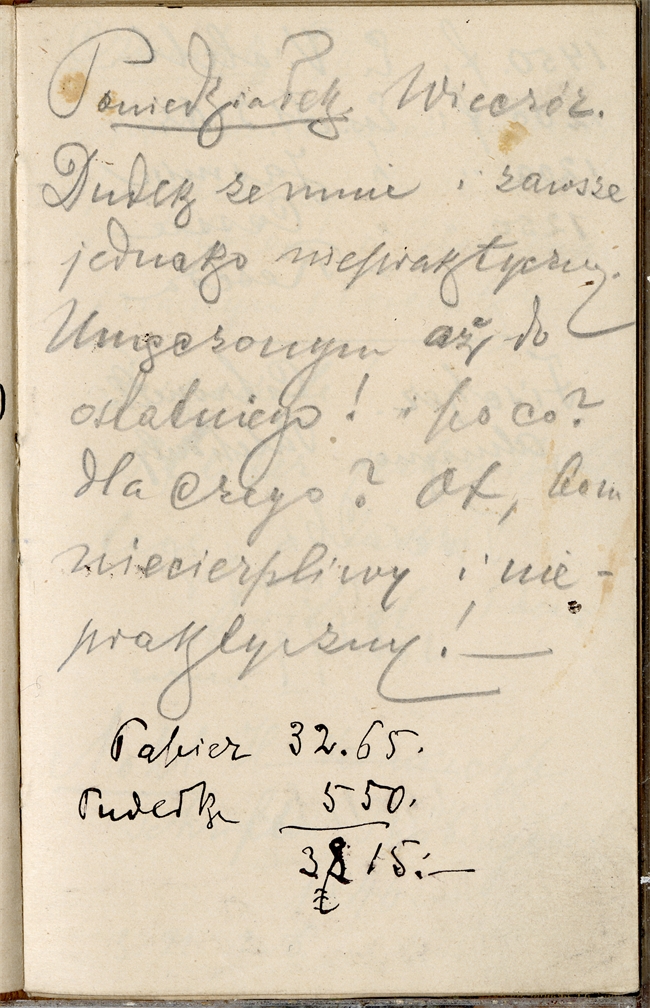 Poniedziałek Wieczór.
Dudek ze mnie i zawsze
jednako niepraktyczny.
Umęczonym aż do
ostatniego! i po co?
dla czego? Ot, bom
niecierpliwy i nie-
praktyczny! —
Papier 32.65.
Pudełka 550.
38 15.—